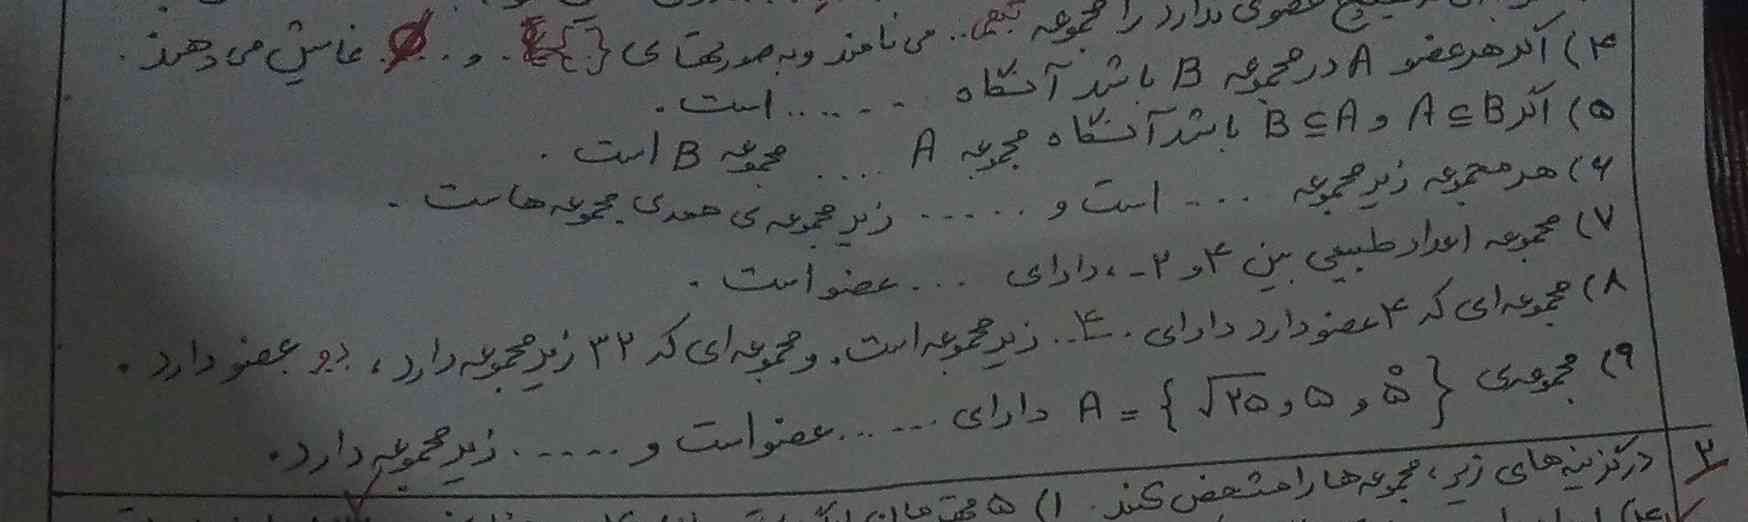 عضوی ندارد را مجموعه تهی .. می نامند و به صورتهای { } و ∅ نمایش می دهند .
۴) اگر هر عضو A در مجموعه B باشد آنگاه ........ است .
۵) اگر A ⊆ B و B ⊆ A باشد آنگاه مجموعه A .... مجموعه B است .
۶) هر مجموعه زیر مجموعه .... است و ...... زیر مجموعه ی همه ی مجموعه هاست .
۷) مجموعه اعداد طبیعی بین ۴ و ۲- ، دارای ... عضو است .
۸) مجموعه ای که ۴ عضو دارد دارای .۴.. زیر مجموعه است . و مجموعه ای که ۳۲ زیر مجموعه دارد ، دو عضو دارد .
۹) مجموعه ی A = { √۲۵ و ۵ و ۵° } دارای ...... عضو است و ...... زیر مجموعه دارد .
۳ در گزینه های زیر ، مجموعه ها را مشخص کنید . ۱) ۵